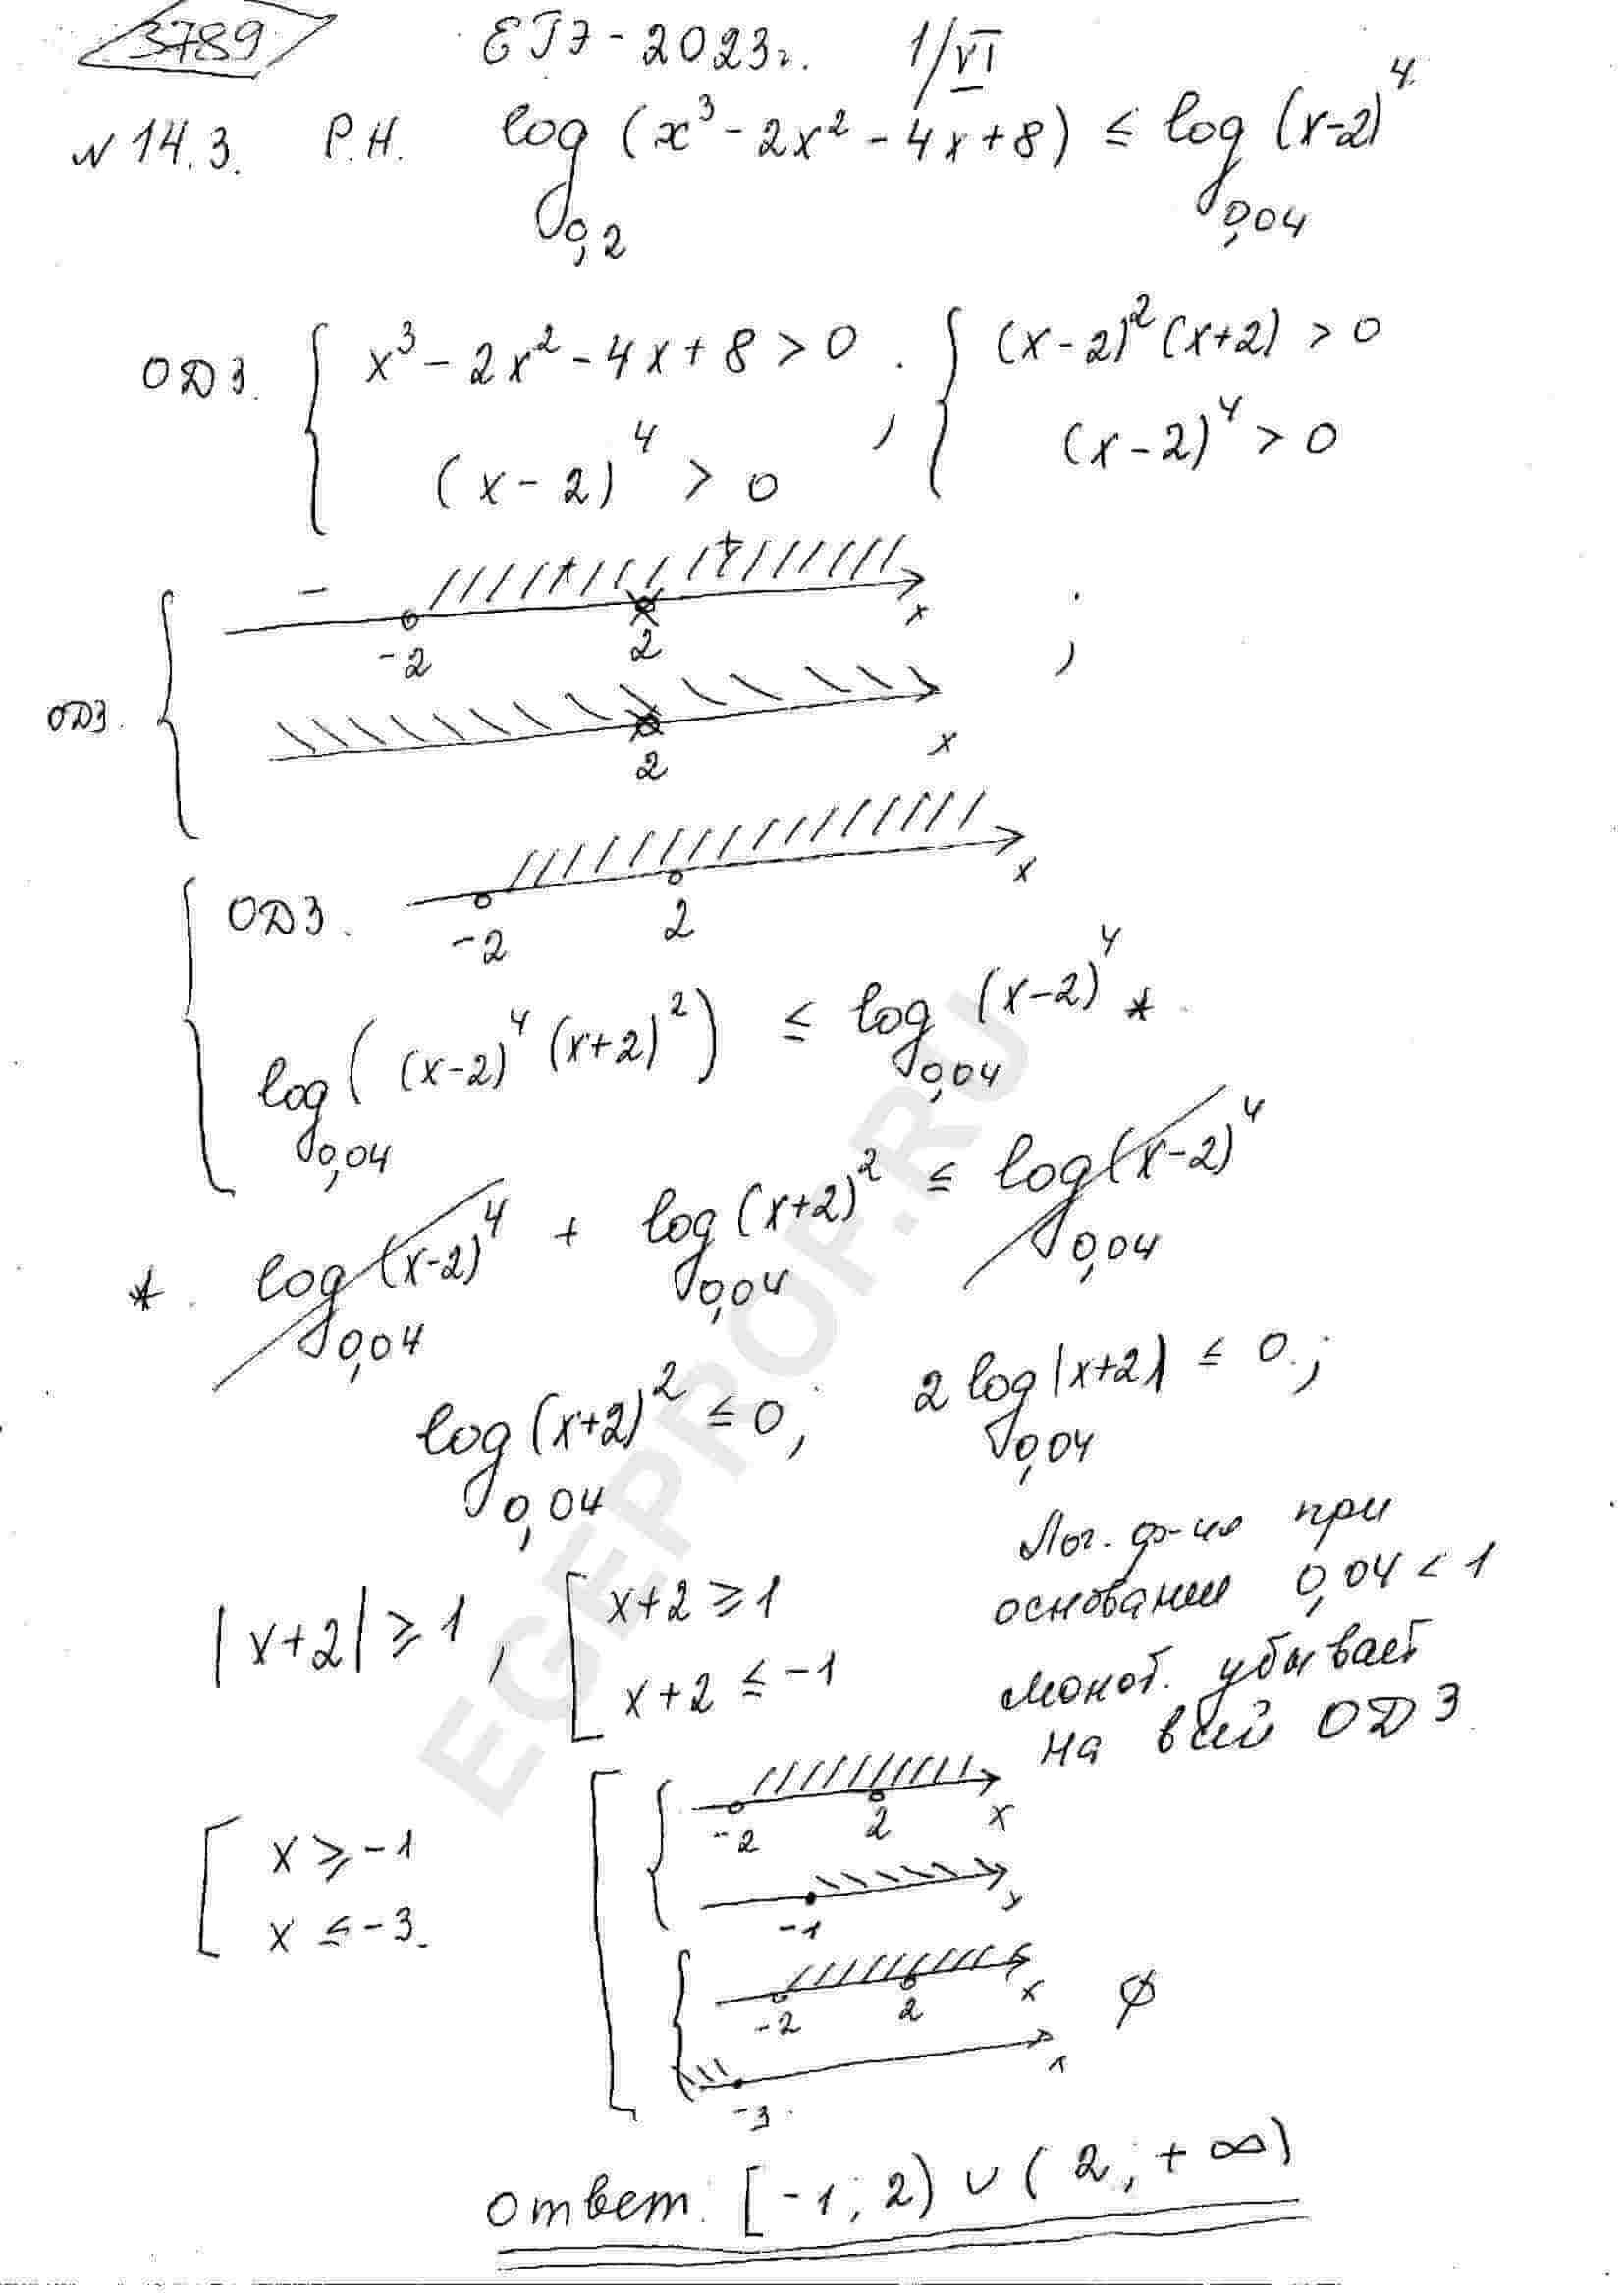 3789 ЕГЭ-2023г. 1/VI
N14.3. Р.Н. log_{0,2} (x³ - 2x² - 4x + 8) ≤ log_{0,04} (x-2)⁴
ОДЗ. { x³ - 2x² - 4x + 8 > 0 ; { (x-2)² (x+2) > 0
(x-2)⁴ > 0 (x-2)⁴ > 0
- + + x
-2 2 ;
ОДЗ. {
2 x
{ ОДЗ. -2 2 x
log_{0,04} ( (x-2)⁴ (x+2)² ) ≤ log_{0,04} (x-2)⁴ *
* log_{0,04} (x-2)⁴ + log_{0,04} (x+2)² ≤ log_{0,04} (x-2)⁴
log_{0,04} (x+2)² ≤ 0; 2 log_{0,04} |x+2| ≤ 0;
Лог. ф-ия при
основании 0,04 < 1
монот. убывает
на всей ОДЗ
|x+2| ≥ 1, [ x+2 ≥ 1
x+2 ≤ -1
[ x ≥ -1
x ≤ -3.
[ { -2 2 x
-1 x
{ -2 2 x ∅
-3 x
ответ: [-1; 2) ∪ (2; +∞)
EGEPROP.RU